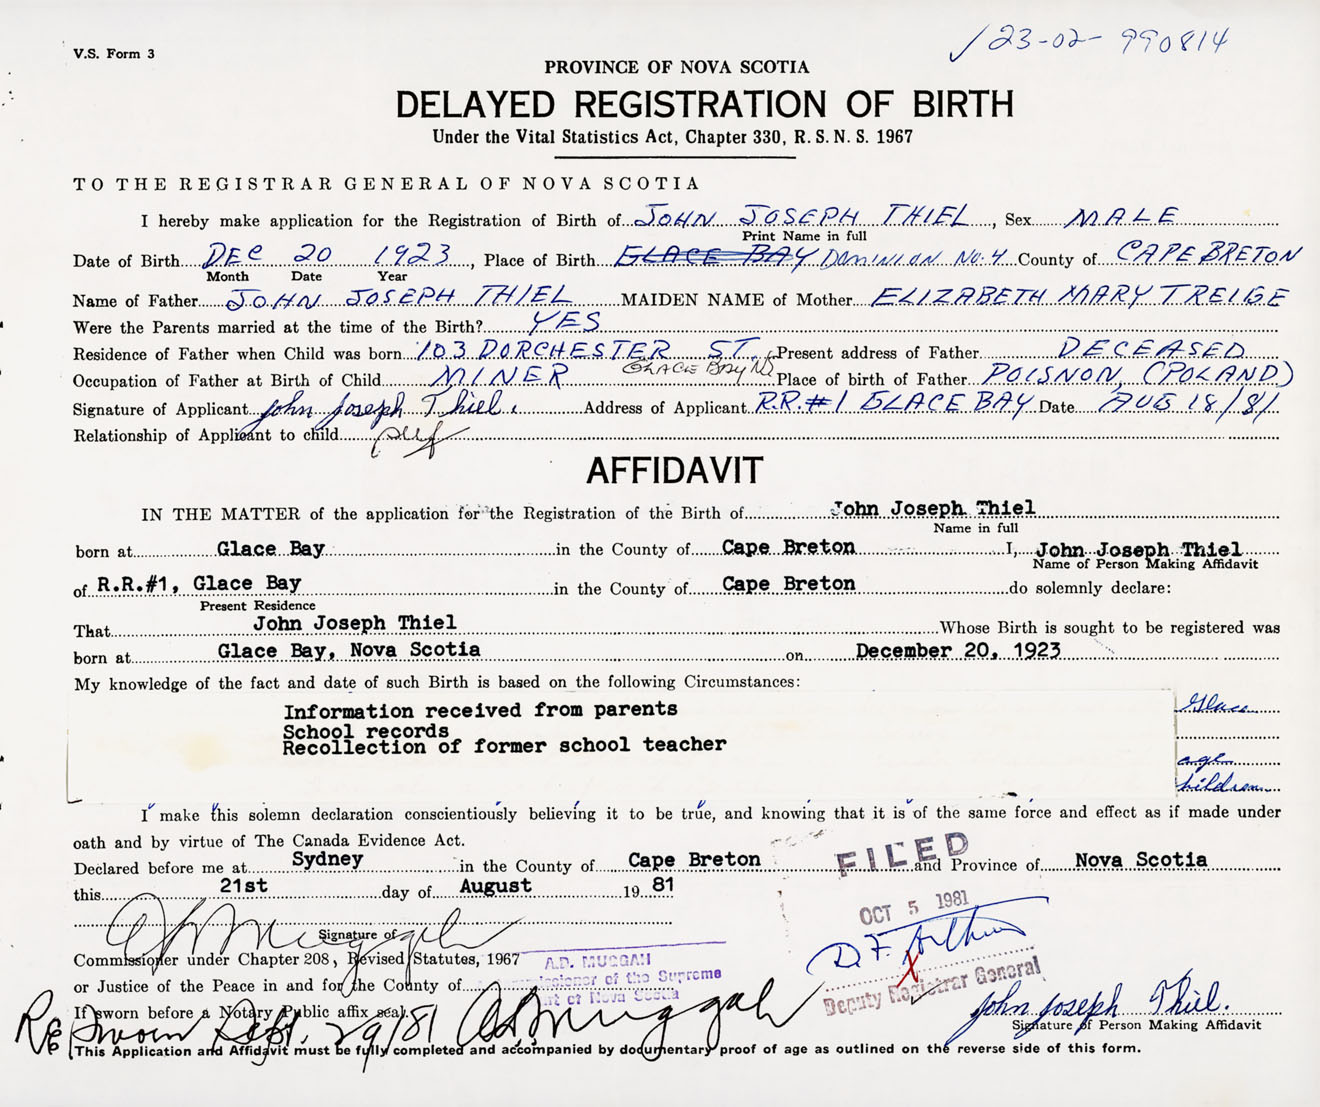 V.S. Form 3
23-02- 990814
PROVINCE OF NOVA SCOTIA
DELAYED REGISTRATION OF BIRTH
Under the Vital Statistics Act, Chapter 330, R. S. N. S. 1967
TO THE REGISTRAR GENERAL OF NOVA SCOTIA
I hereby make application for the Registration of Birth of JOHN JOSEPH THIEL, Sex MALE
Print Name in full
Date of Birth DEC 20 1923, Place of Birth GLACE BAY DOMINION No. 4 County of CAPE BRETON
Month Date Year
Name of Father JOHN JOSEPH THIEL MAIDEN NAME of Mother ELIZABETH MARY TREIGE
Were the Parents married at the time of the Birth? YES
Residence of Father when Child was born 103 DORCHESTER ST. Present address of Father DECEASED
GLACE BAY NS
Occupation of Father at Birth of Child MINER Place of birth of Father POISNON, (POLAND)
Signature of Applicant John Joseph Thiel. Address of Applicant R.R.#1 GLACE BAY Date AUG 18/81
Relationship of Applicant to child self
AFFIDAVIT
IN THE MATTER of the application for the Registration of the Birth of John Joseph Thiel
Name in full
born at Glace Bay in the County of Cape Breton I, John Joseph Thiel
Name of Person Making Affidavit
of R.R.#1, Glace Bay in the County of Cape Breton do solemnly declare:
Present Residence
That John Joseph Thiel Whose Birth is sought to be registered was
born at Glace Bay, Nova Scotia on December 20, 1923
My knowledge of the fact and date of such Birth is based on the following Circumstances:
Information received from parents Glace
School records
Recollection of former school teacher age
hildren
I make this solemn declaration conscientiously believing it to be true, and knowing that it is of the same force and effect as if made under
oath and by virtue of The Canada Evidence Act.
FILED
Declared before me at Sydney in the County of Cape Breton and Province of Nova Scotia
this 21st day of August 19 81
OCT 5 1981
Signature of
D. F. Arthur
Commissioner under Chapter 208, Revised Statutes, 1967
A.D. MUGGAH
or Justice of the Peace in and for the County of
missioner of the Supreme
rt of Nova Scotia
Deputy Registrar General
If sworn before a Notary Public affix seal.
John Joseph Thiel.
Signature of Person Making Affidavit
Re Sworn Sept. 29/81 A D Muggah
This Application and Affidavit must be fully completed and accompanied by documentary proof of age as outlined on the reverse side of this form.